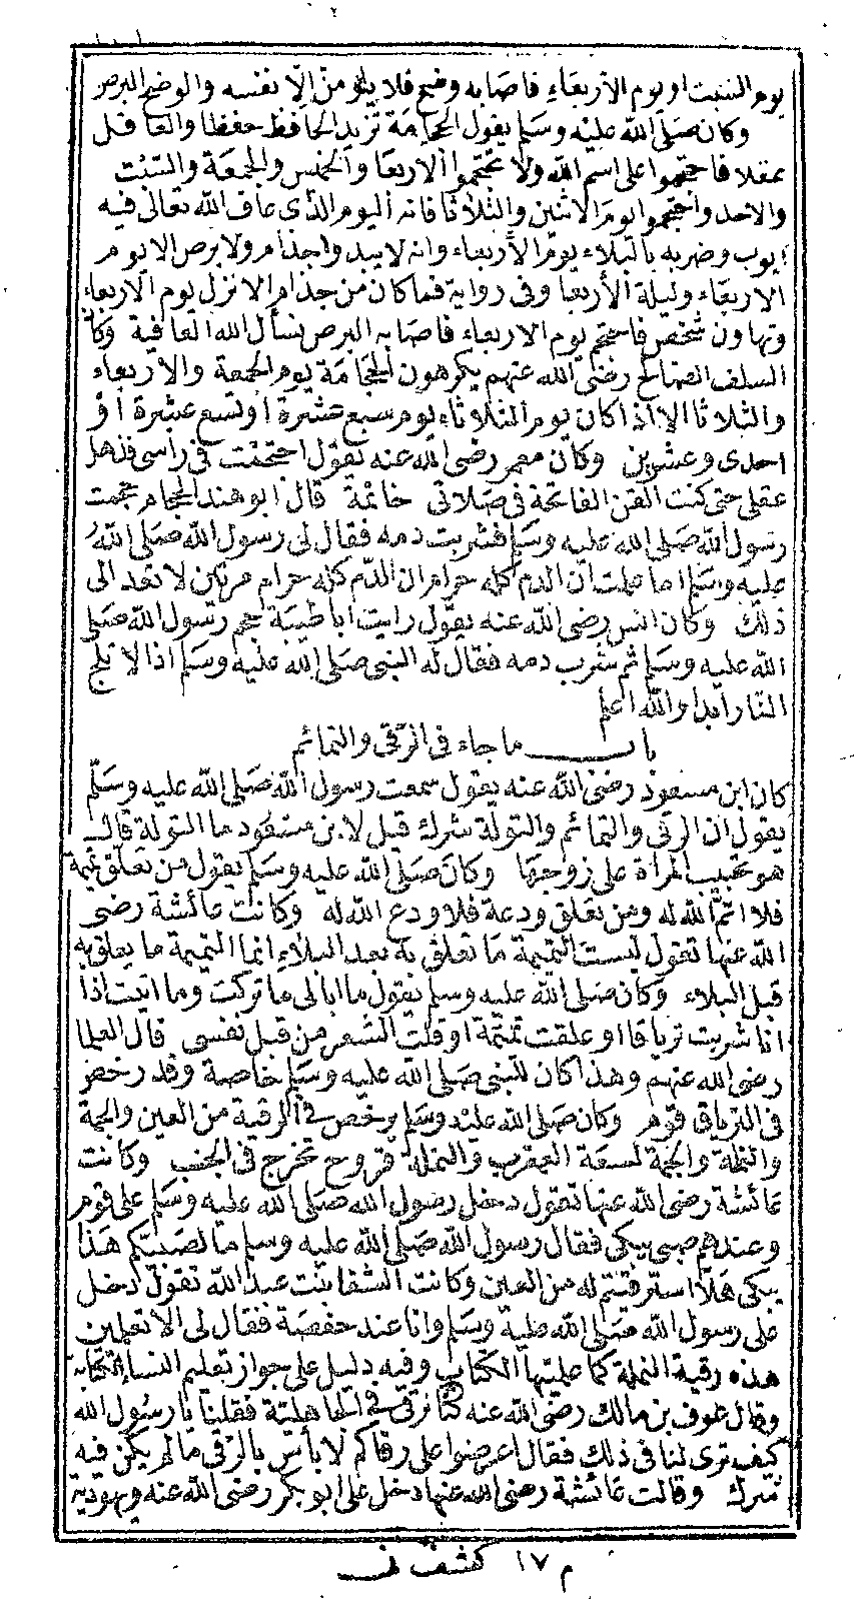 يوم السبت او يوم الأربعاء فاصابه وضح فلا يلومن إلا نفسه والوضح البرص
وكان صلى الله عليه وسلم يقول الحجامة تزيد الحافظ حفظا والعاقل
عقلا فاحتجموا على اسم الله ولا تحتجموا الاربعا والخميس والجمعة والسبت
والاحد واحتجموا يوم الاثنين والثلاثا فانه اليوم الذى عافى الله تعالى فيه
ايوب وضربه بالبلاء يوم الأربعاء وانه لا يبدوا جذام ولا برص الا يوم
الاربعاء وليلة الأربعا وفى رواية فما كان من جذام الا نزل يوم الاربعاء
وتهاون شخص فاحتجم يوم الاربعاء فاصابه البرص نسأل الله العافية وكان
السلف الصالح رضى الله عنهم يكرهون الحجامة يوم الجمعة والأربعاء
والثلاثا الا اذا كان يوم الثلاثاء يوم سبع عشرة او تسع عشرة أو
احدى وعشرين وكان معمر رضى الله عنه يقول احتجمت فى راسى فذهل
عقلى حتى كنت القن الفاتحة فى صلاتى خاتمة قال ابو هند الحجام حجمت
رسول الله صلى الله عليه وسلم فشربت دمه فقال لى رسول الله صلى الله
عليه وسلم اما علمت ان الدم كله حرام ان الدم كله حرام مرتين لا تعد الى
ذلك وكان انس رضى الله عنه يقول رايت ابا طيبة حجم رسول الله صلى
الله عليه وسلم ثم شرب دمه فقال له النبى صلى الله عليه وسلم اذا لا تلج
النار ابدا والله اعلم
باب ما جاء فى الرقى والتمائم
كان ابن مسعود رضى الله عنه يقول سمعت رسول الله صلى الله عليه وسلم
يقول ان الرقى والتمائم والتولة شرك قيل لابن مسعود ما التولة قال
هو تحبيب المرأة على زوجها وكان صلى الله عليه وسلم يقول من تعلق تميمة
فلا اتم الله له ومن تعلق ودعة فلا ودع الله له وكانت عائشة رضى
الله عنها تقول ليست التميمة ما تعلق به بعد البلاء انما التميمة ما يعلق به
قبل البلاء وكان صلى الله عليه وسلم يقول ما ابالى ما تركت وما اتيت اذا
انا شربت ترياقا او علقت تميمة او قلت الشعر من قبل نفسى قال العلما
رضى الله عنهم وهذا كان للنبى صلى الله عليه وسلم خاصة وقد رخص
فى الترياق قوم وكان صلى الله عليه وسلم يرخص فى الرقية من العين والحمة
والنملة والحمة لسعة العقرب والنملة قروح تخرج فى الجنب وكانت
عائشة رضى الله عنها تقول دخل رسول الله صلى الله عليه وسلم على قوم
وعندهم صبى يبكى فقال رسول الله صلى الله عليه وسلم ما لصبيكم هذا
يبكى هلا استرقيتم له من العين وكانت الشفا بنت عبد الله تقول دخل
على رسول الله صلى الله عليه وسلم وانا عند حفصة فقال لى الا تعلمين
هذه رقية النملة كما علمتها الكتاب وفيه دليل على جواز تعليم النساء الكتابة
وقال عوف بن مالك رضى الله عنه كنا نرقى فى الجاهلية فقلنا يا رسول الله
كيف ترى لنا فى ذلك فقال اعرضوا على رقاكم لا بأس بالرقى ما لم يكن فيه
شرك وقالت عائشة رضى الله عنها دخل على ابو بكر رضى الله عنه ويهودية
م ١٧ كشف نى